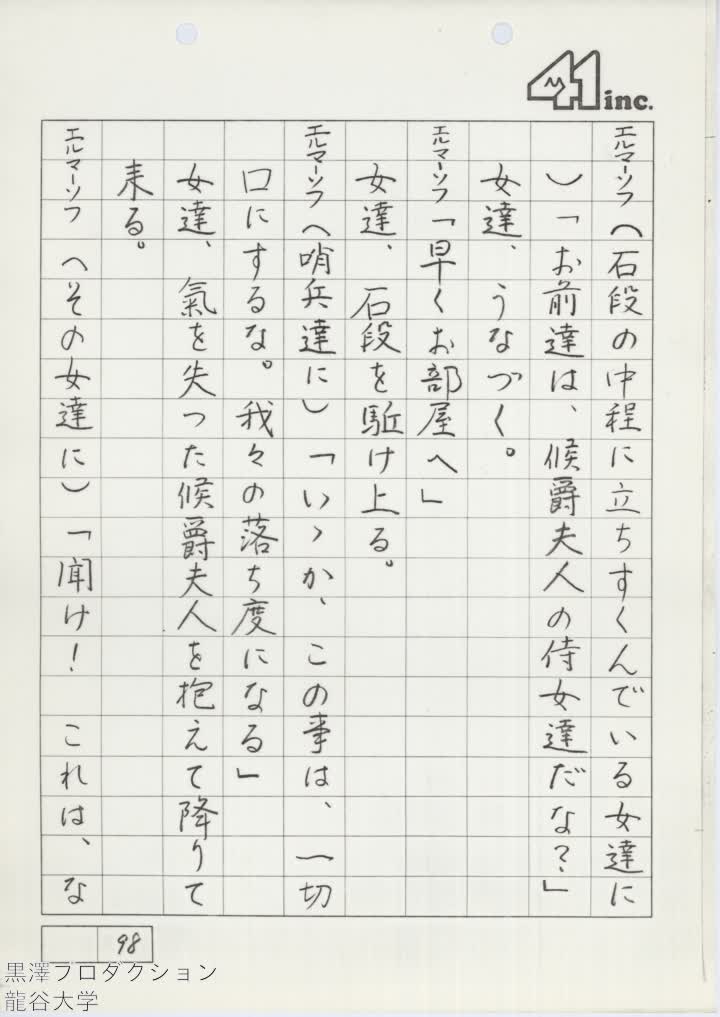 41 inc.
エルマーソフ（石段の中程に立ちすくんでいる女達に
）「お前達は、候爵夫人の侍女達だな？」
女達、うなづく。
エルマーソフ「早くお部屋へ」
女達、石段を駈け上る。
エルマーソフ（哨兵達に）「いゝか、この事は、一切
口にするな。我々の落ち度になる」
女達、氣を失つた候爵夫人を抱えて降りて
来る。
エルマーソフ（その女達に）「聞け！　これは、な
98
黒澤プロダクション
龍谷大学